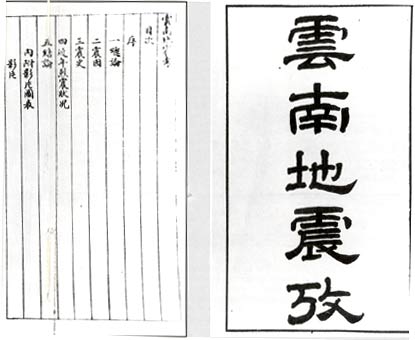 雲南地震攷
雲南地震考
目次
序
一總論
二震因
三震史
四近年烈震狀況
五結論
內附影片圖表
影片